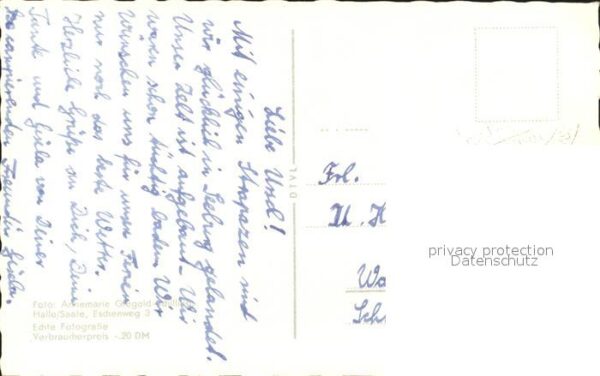 Liebe Ursel!
Mit einigen Strapazen sind
wir glücklich in Seebrog gelandet.
Unser Zelt ist aufgebaut - Wir
waren schon tüchtig baden. Wir
wünschen uns für unsere Ferien
nur noch das beste Wetter.
Herzliche Grüße an Dich, Deine
und von Deiner
Freundin Gisela
Foto: Annemarie
Halle/Saale, Eschenweg 3
Echte Fotografie
Verbraucherpreis -.20 DM
Frl.
U. H
Wa
Sch
privacy protection
Datenschutz